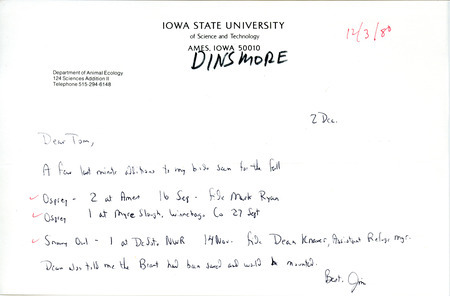 IOWA STATE UNIVERSITY
of Science and Technology
12/3/80
AMES, IOWA 50010
DINSMORE
Department of Animal Ecology
124 Sciences Addition II
Telephone 515-294-6148
2 Dec.
Dear Tom,
A few last minute additions to my birds seen for the fall
Osprey - 2 at Ames 16 Sep. fide Mark Ryan
Osprey 1 at Myre Slough, Winnebago Co 27 Sept
Snowy Owl - 1 at DeSoto NWR 14 Nov. fide Dean Knauer, Assistant Refuge mgr.
Dean also told me the Brant had been saved and would be mounted.
Best. Jim